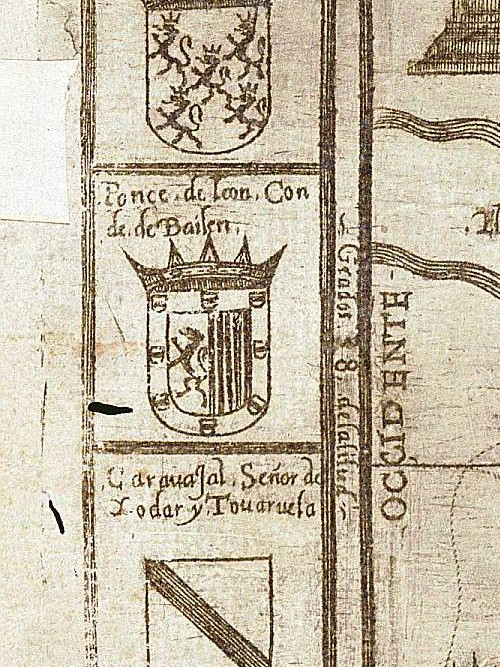 Ponce. de leon. Con
de. de Bailen.
Caravajal. Señor de
Xodar y Tovaruela
Grados. 38. de latitud
OCCIDENTE